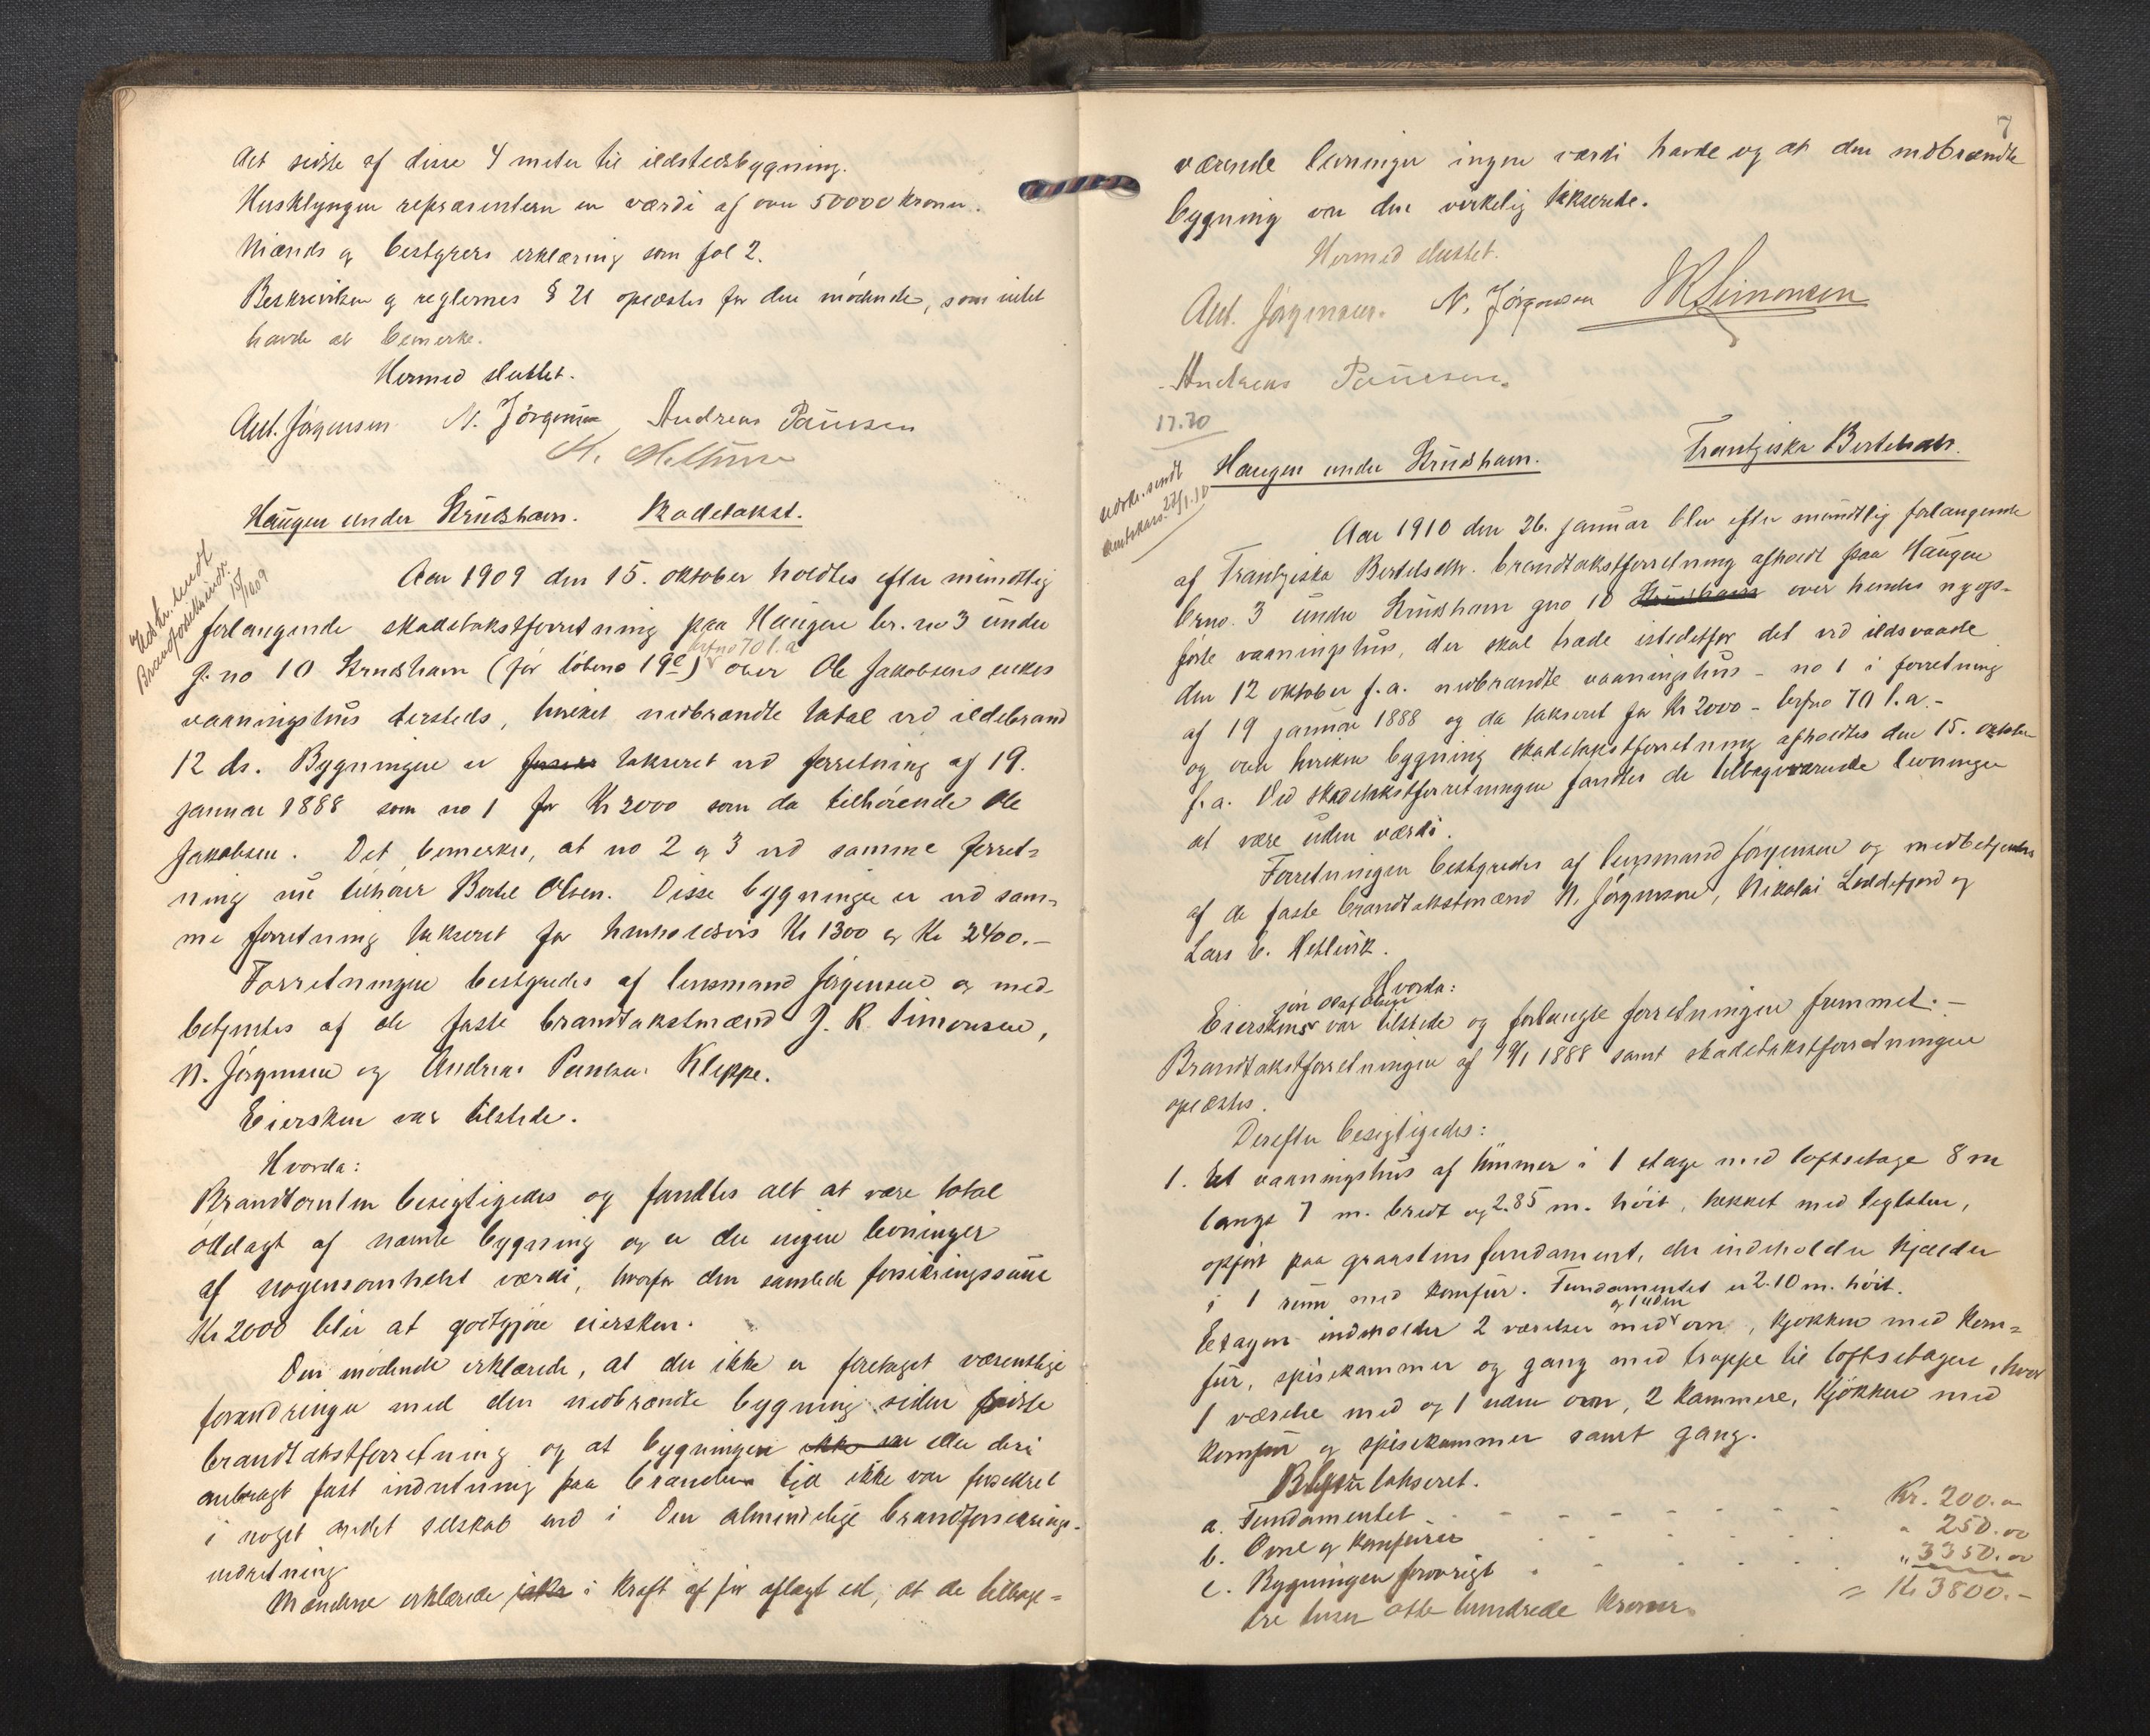 det sidste af disse 4 meter til ildstedsbygning.
Husklyngen repræsenterer en værdi af over 50000 kroner.
Mænds og bestyrers erklæring som fol 2.
Beskrivelsen og reglernes § 21 oplæstes for den mödende, som intet
havde at bemerke.
Hermed sluttet.
Ant. Jörgensen N. Jörgensen Andreas Paulsen
Haugen under Strudshavn. Skadetakst.
Udskr. sendt
Brandforsikrindr.
15/10 09
Aar 1909 den 15. oktober holdtes efter mundtlig
forlangende skadetakstforretning paa Haugen br. no 3 under
brfno 70 l.a
g. no 10 Strudshavn (för löbeno 19e) over Ole Jakobsens enkes
vaaningshus dersteds, hvilket nedbrændte total ved ildebrand
12 ds. Bygningen er takseret ved forretning af 19.
januar 1888 som no 1 for Kr 2000 som da tilhörende Ole
Jakobsen. Det bemerkes, at no 2 og 3 ved samme forret=
ning nu tilhörer Bertel Olsen. Disse bygninger er ved sam=
me forretning takseret for henholdsvis Kr 1300 og Kr 2400.–
Forretningen bestyredes af lensmand Jörgensen og med-
betjentes af de faste brandtakstmænd J. R. Simonsen,
N. Jörgensen og Andreas Paulsen Kleppe.
Eiersken var tilstede.
Hvorda:
Brandtomten besigtigedes og fandtes alt at være total
ödelagt af nævnte bygning og er der ingen levninger
af nogensomhelst værdi, hvorfor den samlede forsikringssum
Kr 2000 blir at godtgjöre eiersken.
Den mödende erklærede, at der ikke er foretaget væsentlige
forandringer med den nedbrændte bygning siden sidste
brandtakstforretning og at bygningen eller deri
anbragt fast indretning paa brandens tid ikke var forsikret
i noget andet selskab end i Den almindelige brandforsikrings-
indretning.
Mændene erklærede i kraft af för aflagt ed, at de tilbage=
7
værende levninger ingen værdi havde og at den nedbrændte
bygning var den virkelig takserede.
Hermed sluttet.
Ant. Jörgensen. N. Jörgensen JRSimonsen
Andreas Paulsen.
17.70
Haugen under Strudshavn. Frantziska Bertelsdtr.
Udskr. sendt
amtskass. 27/1.10
Aar 1910 den 26. januar blev efter mundtlig forlangende
af Frantziska Bertelsdtr. brandtakstforretning afholdt paa Haugen
brno. 3 under Strudshavn gno 10 Strudshavn over hendes nyop-
förte vaaningshus, der skal træde istedetfor det ved ildsvaade
den 12 oktober f.a. nedbrændte vaaningshus – no 1 i forretning
af 19 januar 1888 og da takseret for Kr 2000 – brfno 70 l.a.–
og over hvilken bygning skadetakstforretning afholdtes den 15. oktober
f.a. Ved skadetakstforretningen fandtes de tilbageværende levninger
at være uden værdi.
Forretningen bestyredes af lensmand Jörgensen og medbetjentes
af de faste brandtakstmænd N. Jörgensen, Nikolai Loddefjord og
Lars E. Hetlevik.
Hvorda:
sön Olaf Olsen
Eierskens var tilstede og forlangte forretningen fremmet.–
Brandtakstforretningen af 19/1 1888 samt skadetakstforretningen
oplæstes.
Derefter besigtigedes:
1. Et vaaningshus af tömmer i 1 etage med loftsetage 8 m
langt 7 m. bredt og 2.85 m. höit, tækket med teglsten,
opfört paa graastens fundament, der indeholder kjælder
i 1 rum med komfur. Fundamentet er 2.10 m. höit.
og 1 uden
Etagen indeholder 2 værelser med ovn, kjökken med kom=
fur, spisekammer og gang med trappe til loftsetagen, hvor
1 værelse med og 1 uden ovn, 2 kammere, kjökken med
komfur og spisekammer samt gang.
Blev takseret.
a. Fundamentet - - - - - - Kr. 200.00
b. Ovne og komfurer - - - - - " 250.00
c. Bygningen forövrigt - - - - " 3350.00
tre tusen otte hundrede kroner. = Kr 3800.–